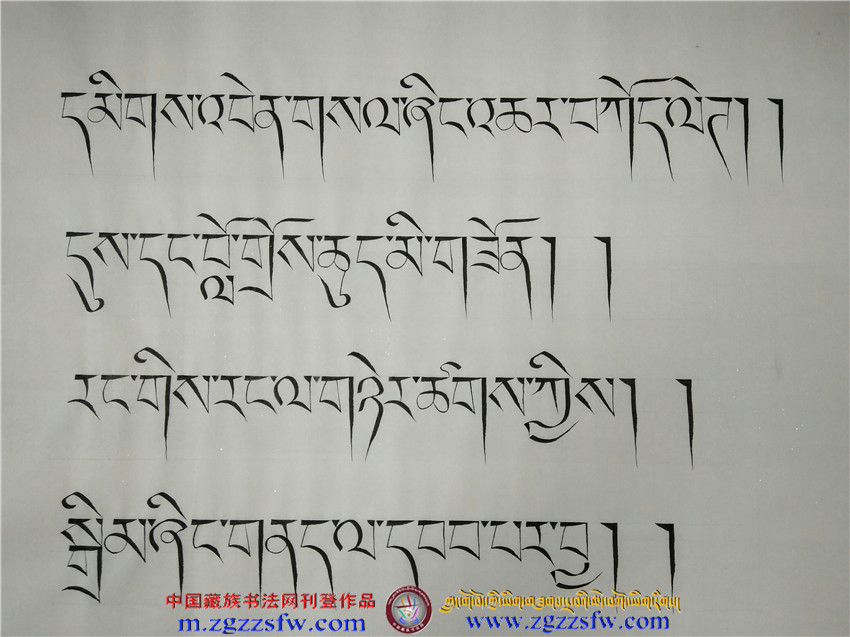 དམིགས་འབེན་གསལ་ཞིང་འཆར་བཀོད་ལེཊ། །
དུས་དང་བློ་གྲོས་ཆུད་མི་གཟོན། །
རང་གིས་རང་ལ་གཉེར་ཚགས་ཀྱིས། །
སྒྲིམ་ཞིང་གནད་ལ་དབབ་པར་བྱ། །
中国藏族书法网刊登作品
m.zgzzsfw.com
www.zgzzsfw.com